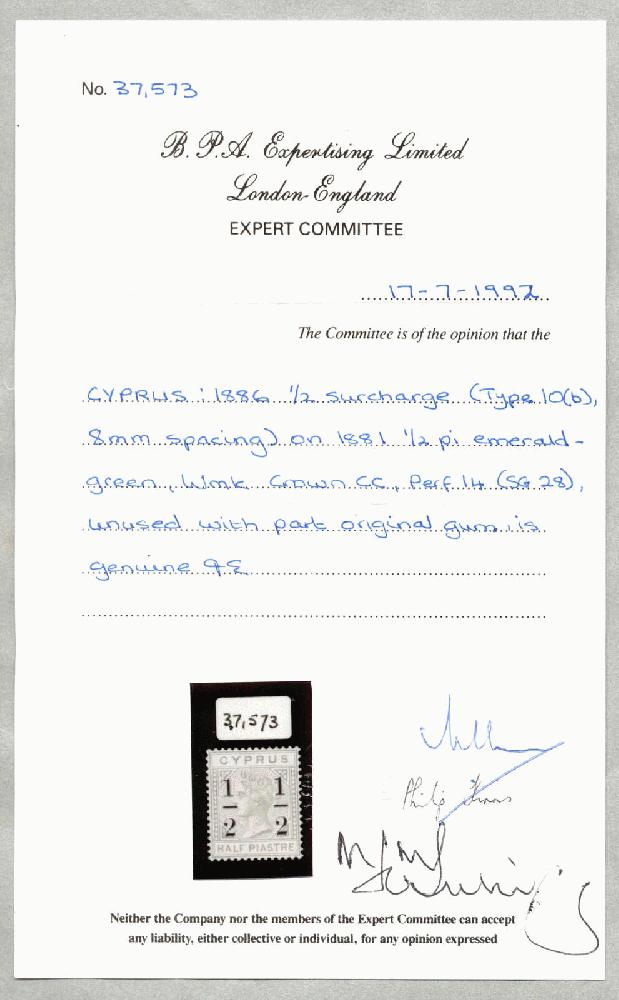 No. 37,573
B. P. A. Expertising Limited
London-England
EXPERT COMMITTEE
17-7-1992
The Committee is of the opinion that the
CYPRUS : 1886 ½ surcharge (Type 10(b),
8mm spacing) on 1881 ½ pi emerald-
green, Wmk Crown CC, Perf 14 (SG 28),
unused with part original gum is
genuine
37,573
CYPRUS
1 1
2 2
HALF PIASTRE
Philip
Neither the Company nor the members of the Expert Committee can accept
any liability, either collective or individual, for any opinion expressed